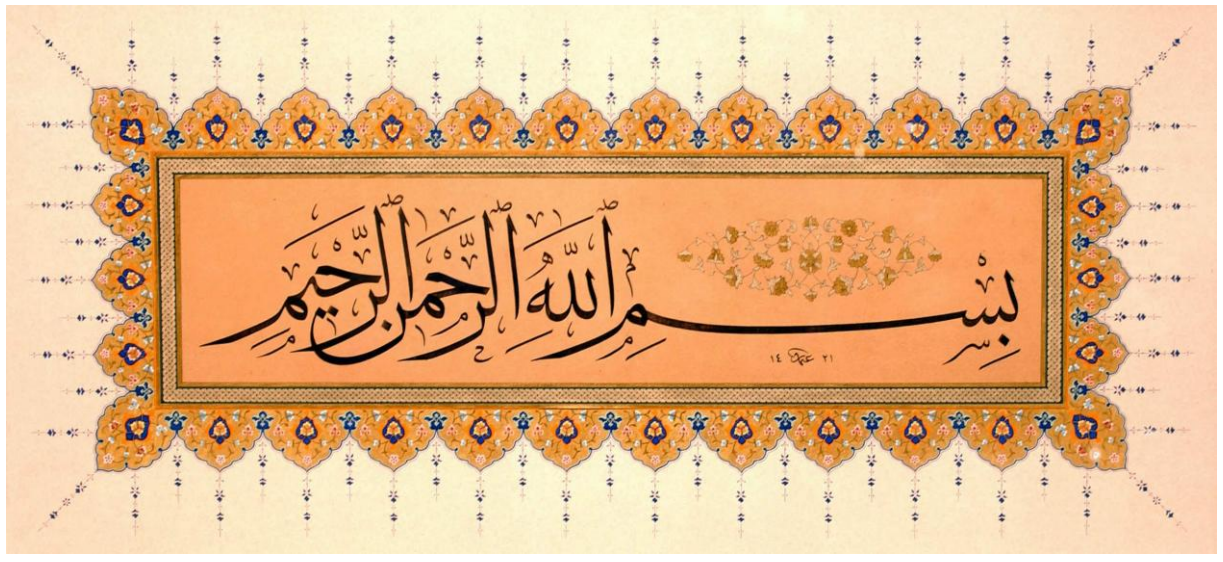 بِسْمِ ٱللَّهِ ٱلرَّحْمَنِ ٱلرَّحِيمِ
١٤ ٢١